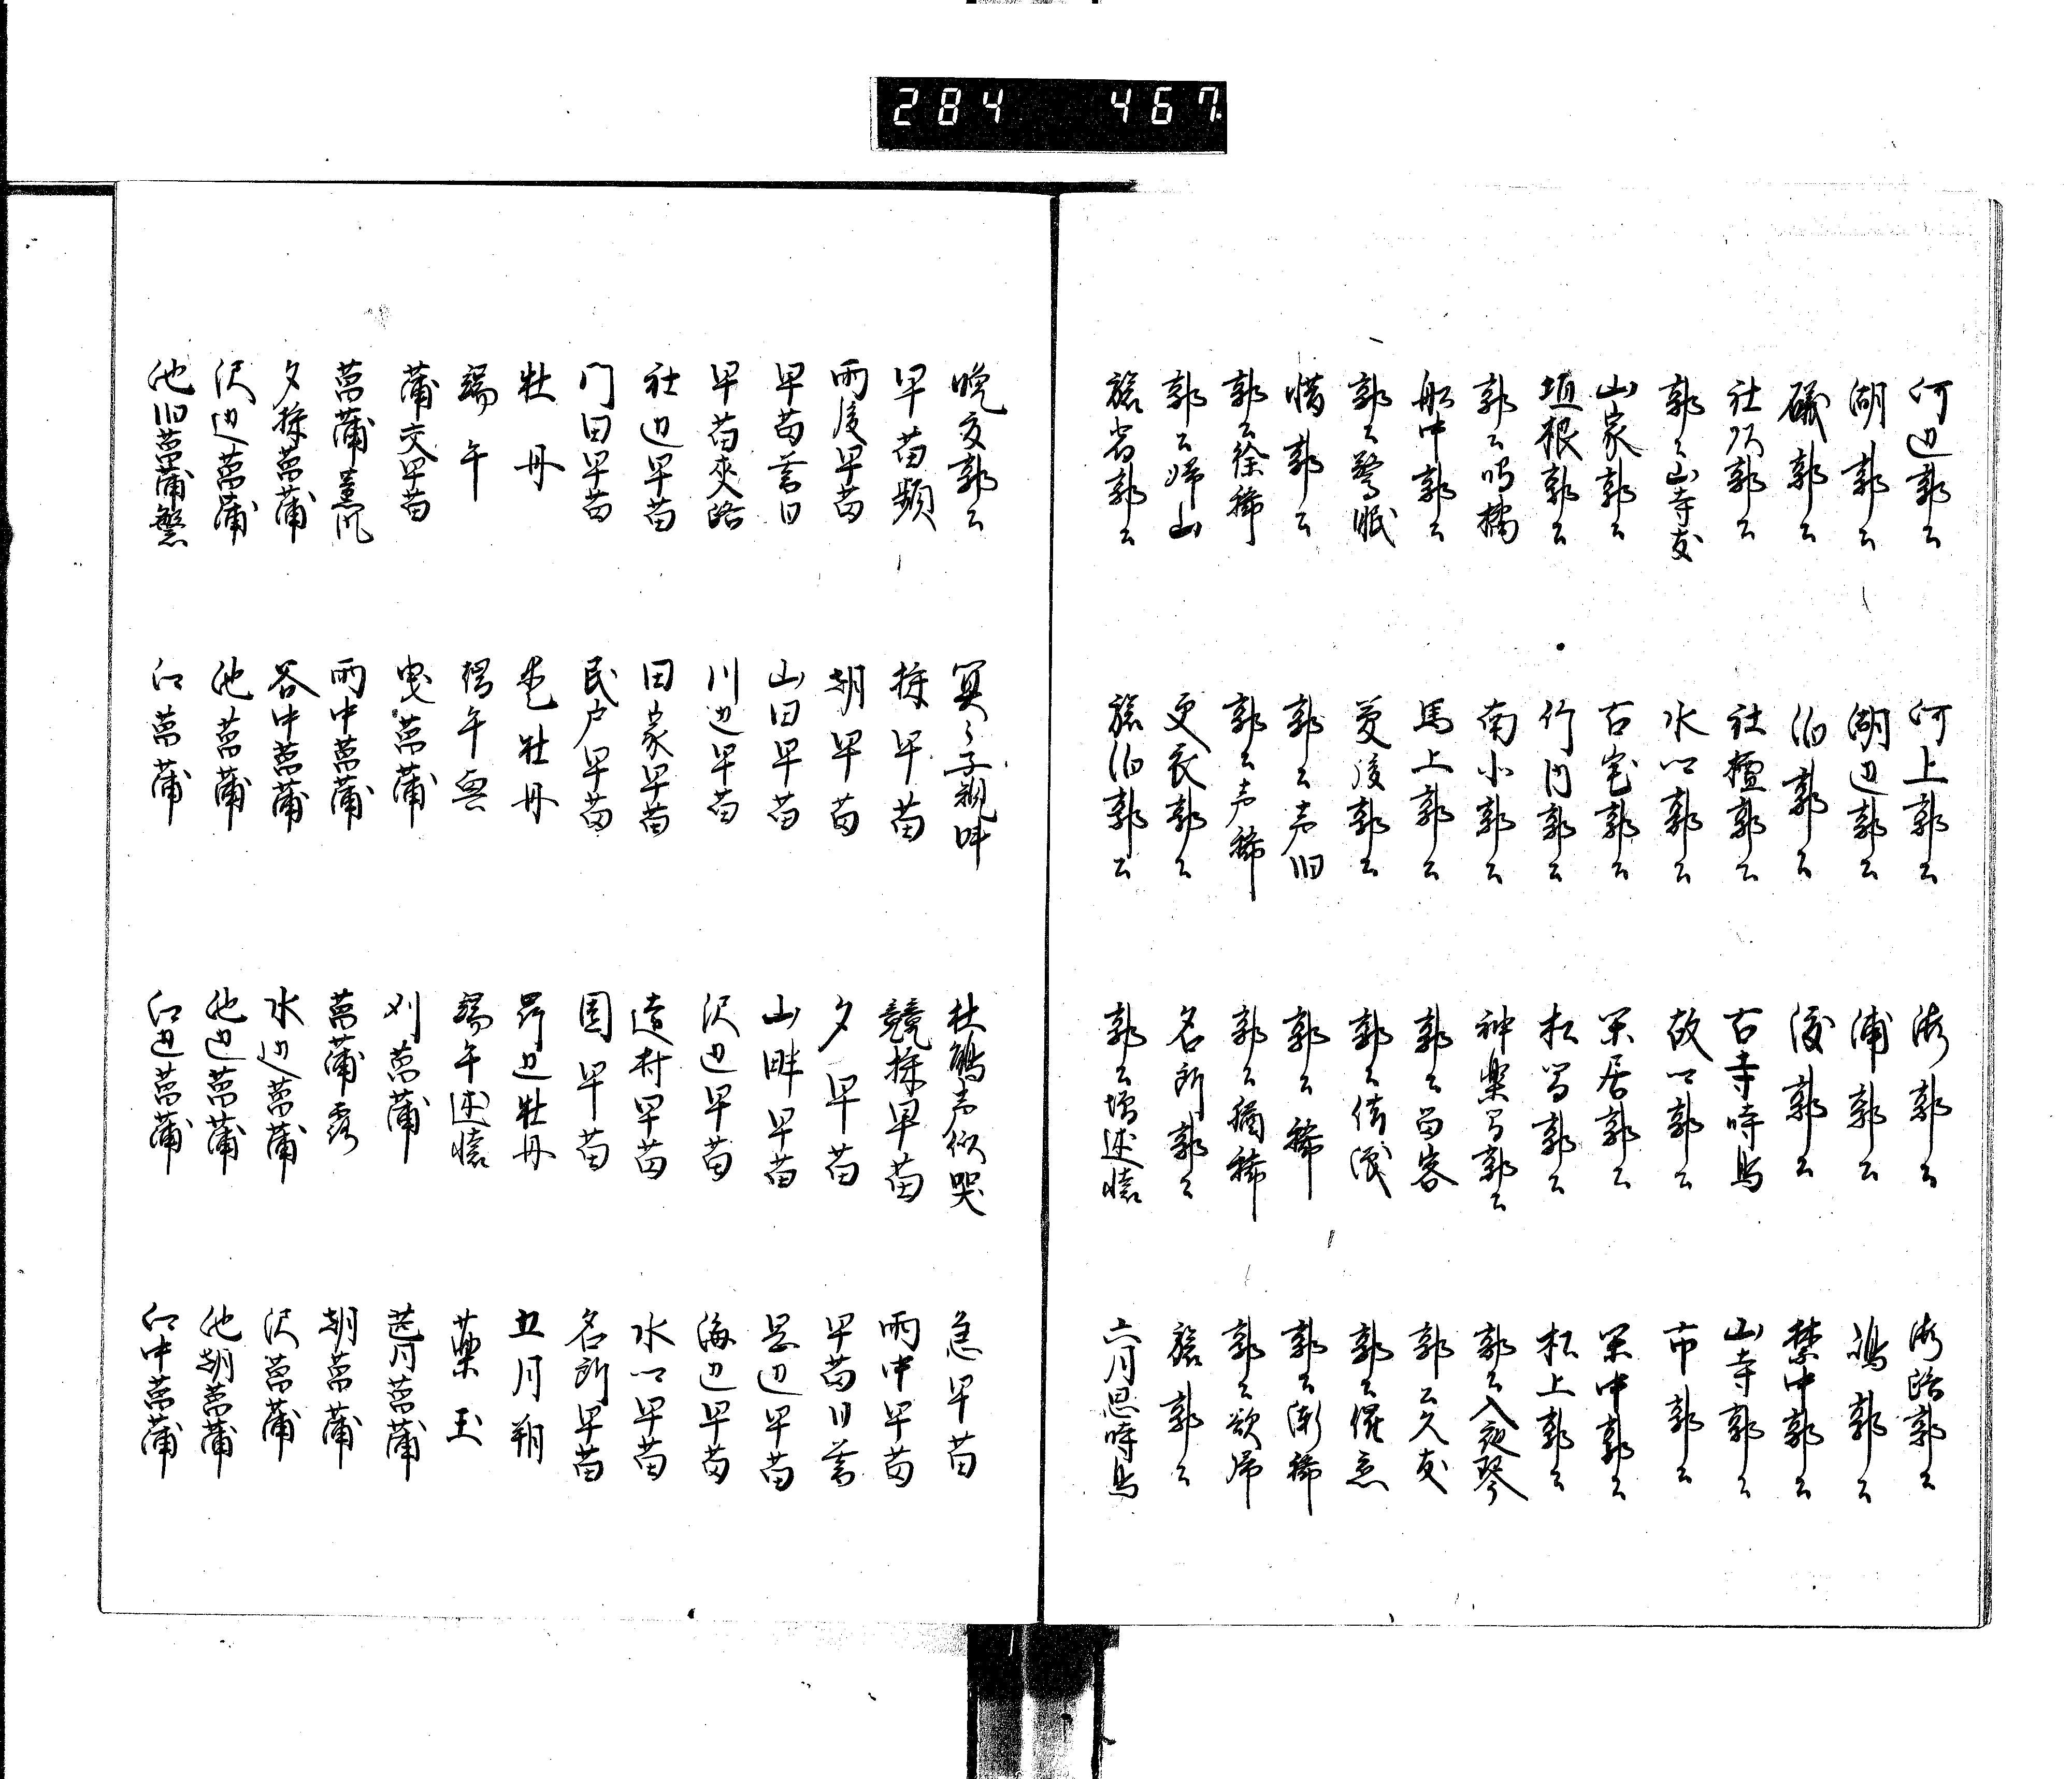 284 467
河辺郭公 河上郭公 海郭公 海路郭公
湖郭公 湖辺郭公 浦郭公 嶋郭公
磯郭公 泊郭公 渡郭公 禁中郭公
社頭郭公 社檀郭公 古寺時鳥 山寺郭公
郭公山寺友 水郷郭公 故郷郭公 市郭公
山家郭公 古宅郭公 閑居郭公 閑中郭公
垣根郭公 竹間郭公 松間郭公 松上郭公
郭公鳴橘 南北郭公 神楽間郭公 郭公入夜琴
船中郭公 馬上郭公 郭公留客 郭公久友
郭公驚眠 夢後郭公 郭公 郭公催恋
惜郭公 郭公声旧 郭公稀 郭公漸稀
郭公徐稀 郭公声稀 郭公猶稀 郭公欲帰
郭公帰山 更衣郭公 名所郭公 旅郭公
旅宿郭公 旅泊郭公 郭公増述懐 六月思時鳥
晩夏郭公 冥々子規叫 杜鵑声似哭 急早苗
早苗頻 採早苗 競採早苗 雨中早苗
雨後早苗 朝早苗 夕早苗 早苗日暮
早苗 山田早苗 山畔早苗 辺早苗
早苗夾路 川辺早苗 沢辺早苗 海辺早苗
社辺早苗 田家早苗 遠村早苗 水郷早苗
門田早苗 民戸早苗 園早苗 名所早苗
牡丹 牡丹 辺牡丹 五月朔
端午 端午興 端午述懐 薬玉
蒲交早苗 曳菖蒲 刈菖蒲 菖蒲
菖蒲薫風 雨中菖蒲 菖蒲露 朝菖蒲
夕採菖蒲 谷中菖蒲 水辺菖蒲 沢菖蒲
沢辺菖蒲 池菖蒲 池辺菖蒲 池朝菖蒲
池旧菖蒲繁 江菖蒲 江辺菖蒲 江中菖蒲